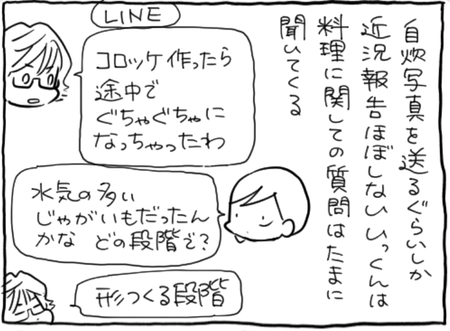 自炊写真を送るぐらいしか
近況報告ほぼしないいっくんは
料理に関しての質問はたまに
聞いてくる
LINE
コロッケ作ったら
途中で
ぐちゃぐちゃに
なっちゃったわ
水気の多い
じゃがいもだったん
かな どの段階で?
形つくる段階